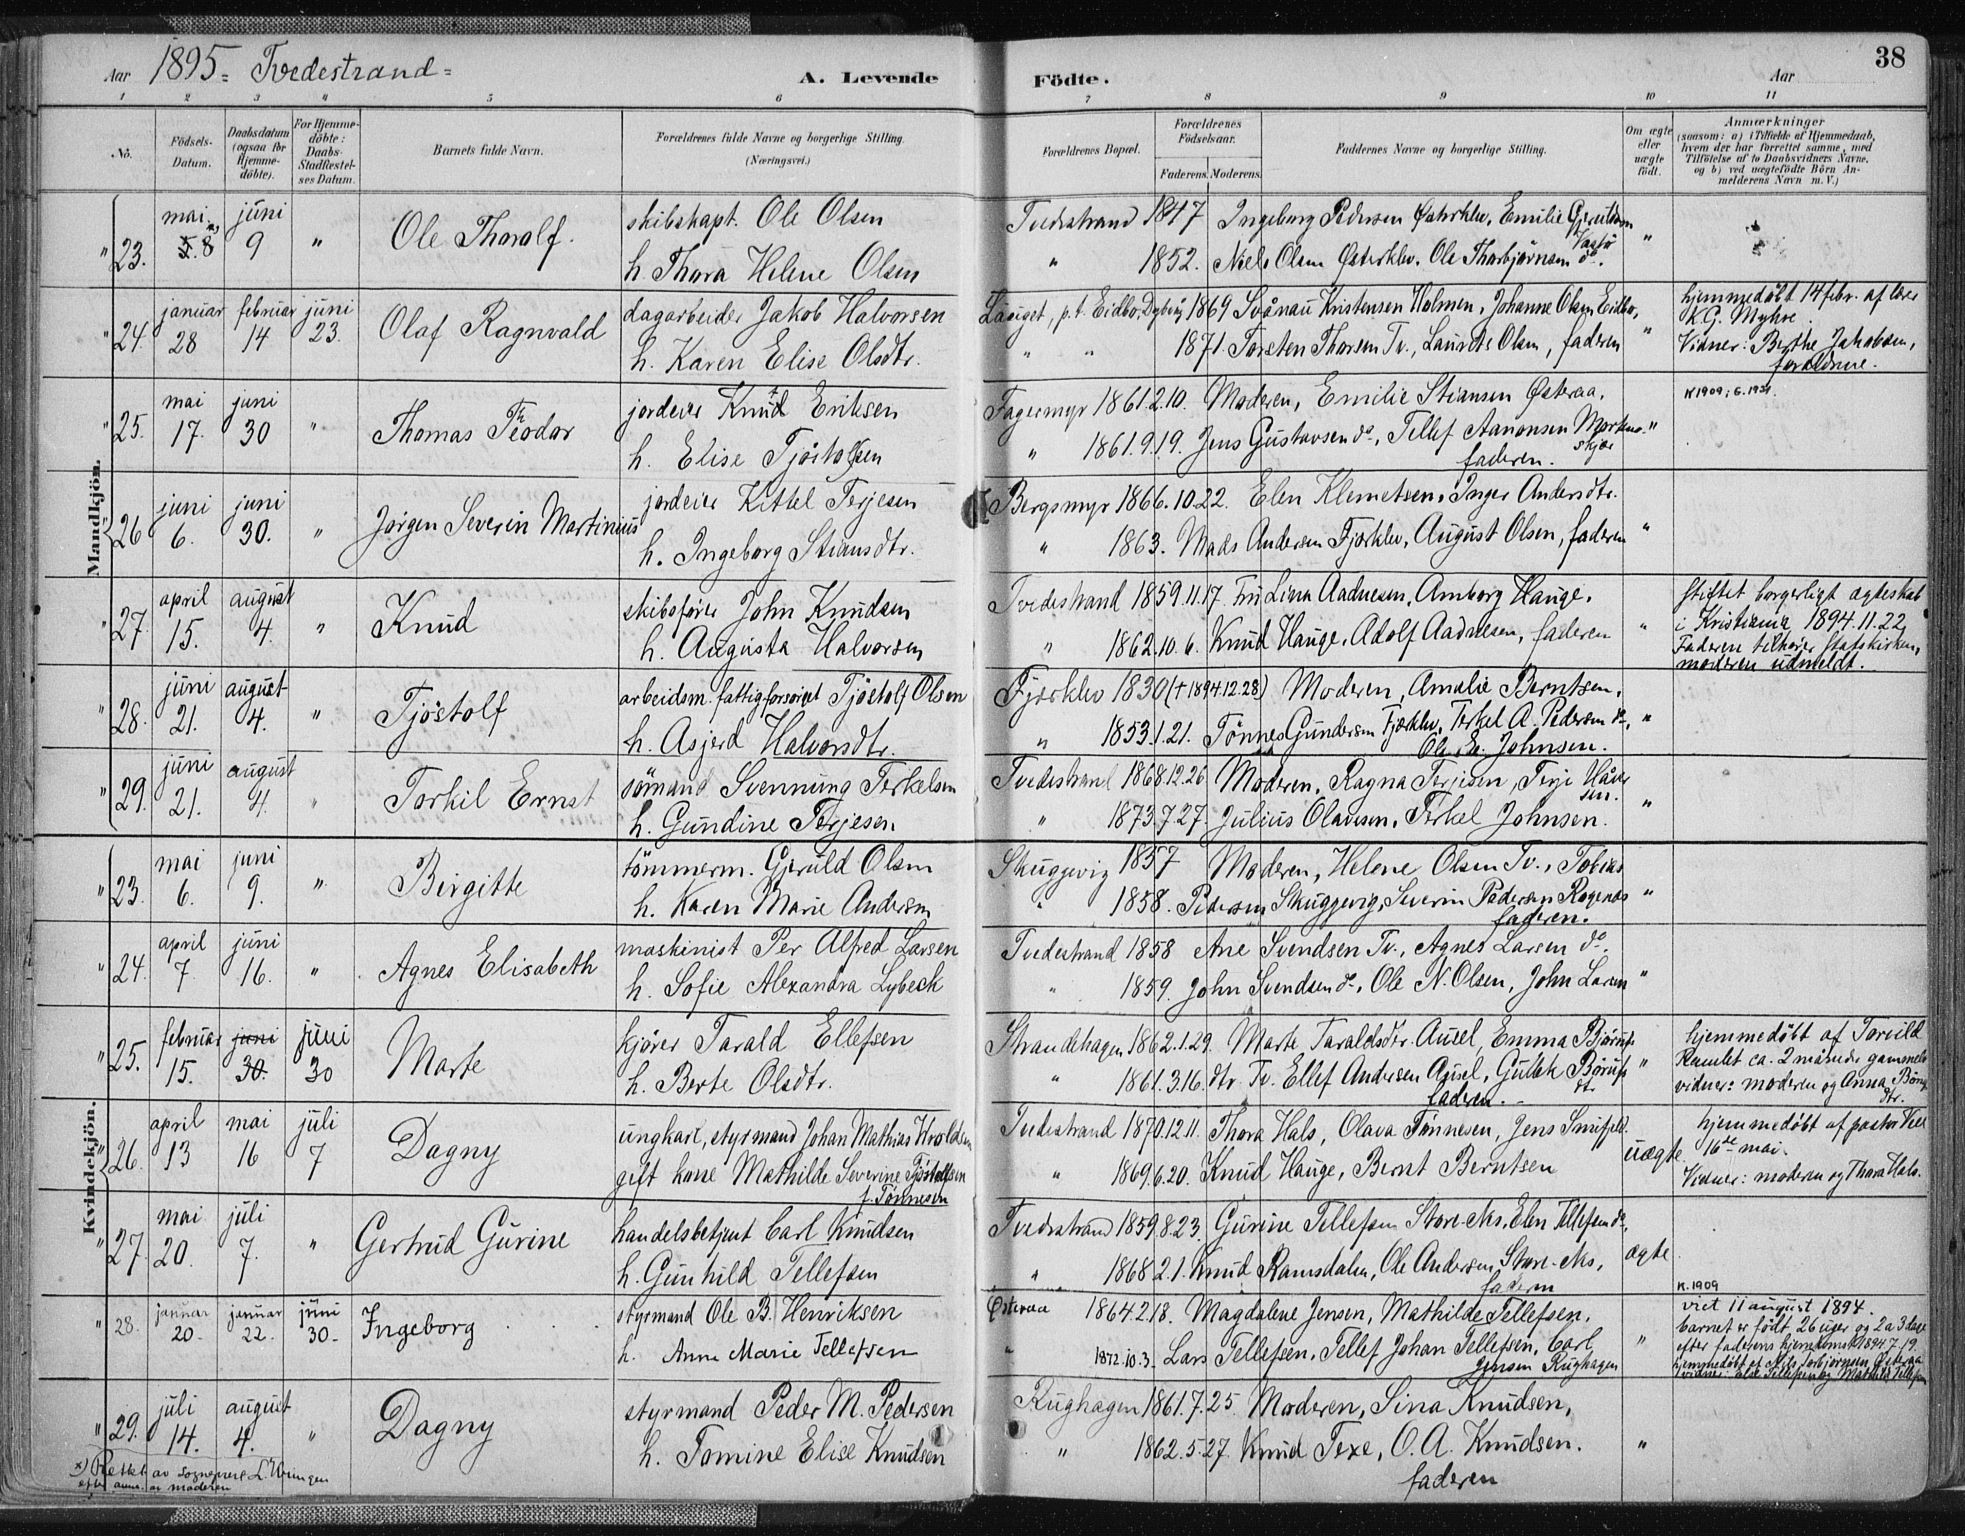 Aar 1895 = Tvedestrand =
A. Levende Födte.
Aar
38
1 2 3 4 5 6 7 8 9 10 11
No.
Födsels-Datum.
Daabsdatum (ogsaa for Hjemme-döbte).
For Hjemme-döbte: Daabs-Stadfæstel-ses Datum.
Barnets fulde Navn.
Forældrenes fulde Navne og borgerlige Stilling. (Næringsvei.)
Forældrenes Bopæl.
Forældrenes Födselsaar.
Faderens. Moderens.
Faddernes Navne og borgerlige Stilling.
Om ægte eller uægte födt.
Anmærkninger
(saasom: a) i Tilfælde af Hjemmedaab, hvem der har forrettet samme, med Tilföielse af to Daabsvidners Navne. og b) ved uægtefödte Börn An-melderens Navn m. V.)
Mandkjön.
" 23. mai 8 juni 9 " Ole Thoralf. skibskapt. Ole Olsen Tvedestrand 1847 Ingeborg Pedersen Østerklev, Emilie
h. Thora Helene Olsen " 1852. Niels Olsen Østerklev. Ole Thorbjørnsen do. "
" 24. januar 28 februar 14 juni 23. Olaf Ragnvald dagarbeider Jakob Halvorsen p.t. Eidbo, 1869 Kristensen Holmen, Johanne Olsen Eidbo,
h. Karen Elise Olsdtr. " " 1871. Torsten Thorsen Tv., Laurits Olsen, faderen "
hjemmedøbt 14 febr. af lærer
K.G. Myhre.
Vidner: Berthe Jakobsen,
forældrene.
" 25. mai 17. juni 30 " Thomas Teodor jordeier Knud Eriksen Fagermyr 1861.2.10. Moderen, Emilie Stiansen Østeraa,
h. Elise Tjøstolfsen " 1861.9.19. Jens Gustavsen do, Tellef Aanonsen "
faderen.
K 1909;
" 26 juni 6. juni 30. " Jørgen Severin Martinius jordeier Kittel Terjesen Bergsmyr 1866.10.22. Elen Klemetsen, Inger Andersdtr.
h. Ingeborg Stiansdtr. " 1863. Mads Andersen Fjærklev, August Olsen, faderen "
" 27 april 15. august 4. " Knud skibsfører John Knudsen Tvedestrand 1859.11.17. Fru Lina Aadnesen, Amborg Hauge,
h. Augusta Halvorsen " 1862.10.6. Knud Hauge, Adolf Aadnesen, faderen "
Stiftet borgerligt ægteskab
i Kristiania 1894.11.22
Faderen tilhører Statskirken,
moderen udmeldt.
" 28. juni 21. august 4. " Tjöstolf arbeidsm. fattigforsørget Tjöstolf Olsen Fjærklev 1830 (†1894.12.28) Moderen, Amalie Berntsen,
h. Asjerd Halvorsdtr. " 1853.1.21. Tönnes Gundersen Fjærklev, Terkel A. Pedersen do, "
Johnsen.
" 29. juni 21. august 4. " Torkil Ernst sömand Svennung Terkelsen Tvedestrand 1868.12.26 Moderen, Ragna Terjesen, Terje
h. Gundine Terjesen " 1873.7.27. Julius Olavesen, Terkel Johnsen. "
Kvindekjön.
" 23. mai 6. juni 9. " Birgitte tömmerm. Gjeruld Olsen Skuggevig 1857 Moderen, Helene Olsen Tv., Tobias
h. Karen Marie Andersen " 1858. Pedersen Skuggevig, Severin Pedersen "
faderen.
" 24. april 7 juni 16. " Agnes Elisabeth maskinist Per Alfred Larsen Tvedestrand 1858 Ane Svendsen Tv., Agnes Larsen do.
h. Sofie Alexandra Lybeck " 1859. John Svendsen do, Ole N. Olsen, John Larsen "
" 25. februar 15. juni 30. juni 30 Marte kjører Tarald Ellefsen Strandehagen 1862.1.29. Marte Taraldsdtr. Ausel, Emma
h. Berte Olsdtr. " 1861.3.16. dtr Tv. Ellef Andersen Ausel, "
faderen.
hjemmedøbt af Torvild
ca. 2 måneder gammel
vidner: moderen og Anna
" 26. april 13 mai 16 juli 7 Dagny ungkarl, styrmand Johan Mathias Tvedestrand 1870.12.11. Thora Hals, Olava Tønnesen, Jens
gift kone Mathilde Severine Tjöstolfsen " 1869.6.20. Knud Hauge, Bernt Berntsen uægte.
f. Tönnesen
hjemmedøbt af pastor
16de mai.
Vidner: moderen og Thora Hals.
" 27. mai 20. juli 7. " Gertrud Gurine handelsbetjent Carl Knudsen Tvedestrand 1859.8.23. Gurine Tellefsen Store-Nes, Elen Tellefsen do,
h. Gunhild Tellefsen " 1868.2.1. Knud Ramsdalen, Ole Andersen, Store-Nes, ægte
faderen
" 28. januar 20. januar 22. juni 30. Ingeborg styrmand Ole B. Henriksen Østeraa 1864.2.18. Magdalene Jensen, Mathilde Tellefsen,
h. Anne Marie Tellefsen " 1872.10.3. Lars Tellefsen, Tellef Johan Tellefsen, Carl "
Jensen Rughagen
K. 1909
viet 11 august 1894.
barnet er født 26 uger og 2 a 3 dage
efter faderens hjemkomst 1894.7.19.
hjemmedøbt af Nils Torbjørnsen Østeraa
vidner: Else Tellefsen og Mathilde Tellefsen
" 29. juli 14. august 4. " Dagny styrmand Peder M. Pedersen Rughagen 1861.7.25. Moderen, Sina Knudsen,
h. Tomine Elise Knudsen " 1862.5.27. Knud Texe, O. A. Knudsen. "
faderen
x) Rettet av sogneprest
efter av moderen